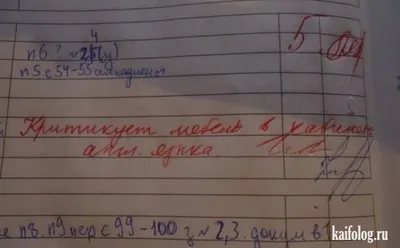 4
п6 ? №25(у)
5
п5 с 54-55
Критикует мебель в кабинете
англ. языка.
п8. п9 пер с 99-100 з №2,3. докум в
kaifolog.ru